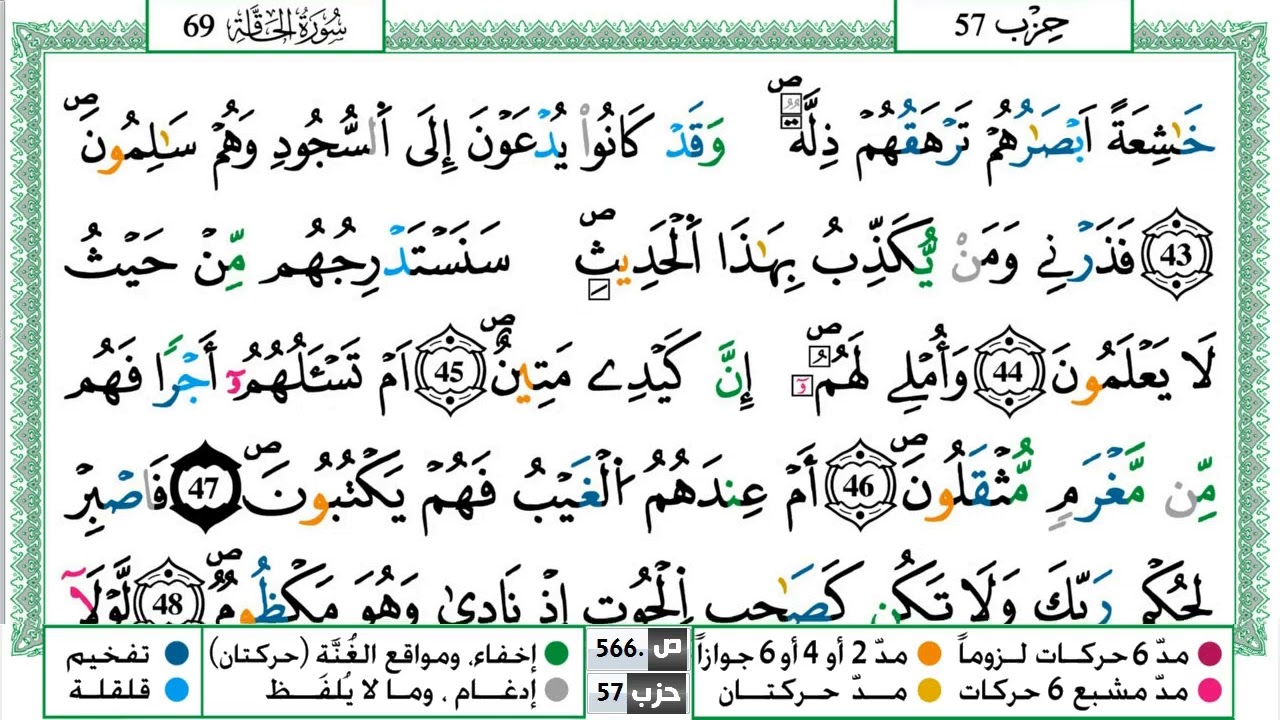 حِزْب 57
سُورَةُ الحَاقَّة 69
خَٰشِعَةً اَبْصَٰرُهُمْ تَرْهَقُهُمْ ذِلَّةٞ ص وَقَدْ كَانُواْ يُدْعَوْنَ إِلَى اَ۬لسُّجُودِ وَهُمْ سَٰلِمُونَ ص
43 فَذَرْنِے وَمَنْ يُّكَذِّبُ بِهَٰذَا اَ۬لْحَدِيثِ ص سَنَسْتَدْرِجُهُم مِّنْ حَيْثُ
لَا يَعْلَمُونَ 44 وَأُمْلِے لَهُمُ ص إِنَّ كَيْدِے مَتِينٌ ص 45 اَمْ تَسْـَٔلُهُمُۥٓ أَجْراٗ فَهُم
مِّن مَّغْرَمٖ مُّثْقَلُونَ ص 46 أَمْ عِندَهُمُ اُ۬لْغَيْبُ فَهُمْ يَكْتُبُونَ ص 47 فَاصْبِرْ
لِحُكْمِ رَبِّكَ وَلَا تَكُن كَصَٰحِبِ اِ۬لْحُوتِ إِذْ نَادٜىٰ وَهُوَ مَكْظُومٞ ص 48 لَّوْلَآ
مدّ 6 حركات لـزوماً مدّ 2 أو 4 أو 6 جوازاً ص. 566 إخفاء، ومواقع الغُنَّة (حركتان) تفخيم
مدّ مشبع 6 حركات مـدّ حركتـان حزب 57 إدغـام ، ومـا لا يُلفَـظ قلقلة